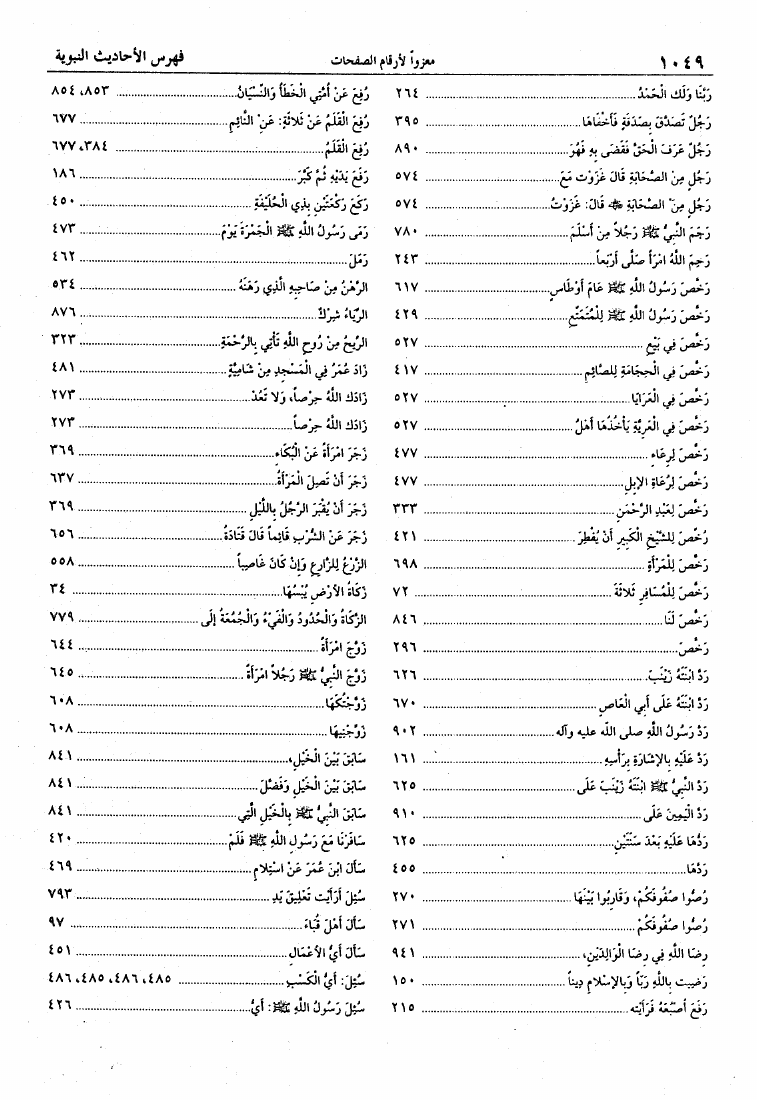 ١٠٤٩ معزواً لأرقام الصفحات فهرس الأحاديث النبوية
رَبَّنَا وَلَكَ الْحَمْدُ ........ ٢٦٤
رَجُلٌ تَصَدَّقَ بِصَدَقَةٍ فَأَخْفَاهَا ........ ٣٩٥
رَجُلٌ عَرَفَ الْحَقَّ فَقَضَى بِهِ فَهُوَ ........ ٨٩٠
رَجُلٍ مِنَ الصَّحَابَةِ قَالَ غَزَوْت مَعَ ........ ٥٧٤
رَجُلٍ مِنَ الصَّحَابَةِ ﷺ قَالَ: غَزَوْتُ ........ ٥٧٤
رَجَمَ النَّبِيُّ ﷺ رَجُلاً مِنْ أَسْلَمَ ........ ٧٨٠
رَحِمَ اللَّهُ امْرَأً صَلَّى أَرْبَعاً ........ ٢٤٣
رَخَّصَ رَسُولُ اللَّهِ ﷺ عَامَ أَوْطَاسٍ ........ ٦١٧
رَخَّصَ رَسُولُ اللَّهِ ﷺ لِلْمُتَمَتِّعِ ........ ٤٢٩
رَخَّصَ فِي بَيْعِ ........ ٥٢٧
رَخَّصَ فِي الْحِجَامَةِ لِلصَّائِمِ ........ ٤١٧
رَخَّصَ فِي الْعَرَايَا ........ ٥٢٧
رَخَّصَ فِي الْعَرِيَّةِ يَأْخُذُهَا أَهْلُ ........ ٥٢٧
رَخَّصَ لِرِعَاءِ ........ ٤٧٧
رَخَّصَ لِرُعَاةِ الإِبِلِ ........ ٤٧٧
رَخَّصَ لِعَبْدِ الرَّحْمَنِ ........ ٣٣٣
رُخِّصَ لِلشَّيْخِ الْكَبِيرِ أَنْ يُفْطِرَ ........ ٤٢١
رَخَّصَ لِلْمَرْأَةِ ........ ٦٩٨
رَخَّصَ لِلْمُسَافِرِ ثَلاَثَةَ ........ ٧٢
رَخَّصَ لَنَا ........ ٨٤٦
رَخَّصَ ........ ٢٩٦
رَدَّ ابْنَتَهُ زَيْنَبَ ........ ٦٢٦
رَدَّ ابْنَتَهُ عَلَى أَبِي الْعَاصِ ........ ٦٧٠
رَدَّ رَسُولُ اللَّهِ صلى الله عليه وآله ........ ٩٠٢
رَدَّ عَلَيْهِ بِالإِشَارَةِ بِرَأْسِهِ ........ ١٦١
رَدَّ النَّبِيُّ ﷺ ابْنَتَهُ زَيْنَبَ عَلَى ........ ٦٢٥
رَدَّ الْيَمِينَ عَلَى ........ ٩١٠
رَدَّهَا عَلَيْهِ بَعْدَ سَنَتَيْنِ ........ ٦٢٥
رَدَّهَا ........ ٤٥٥
رُصُّوا صُفُوفَكُمْ، وَقَارِبُوا بَيْنَهَا ........ ٢٧٠
رُصُّوا صُفُوفَكُمْ ........ ٢٧١
رِضَا اللَّهِ فِي رِضَا الْوَالِدَيْنِ، ........ ٩٤١
رَضِيت بِاللَّهِ رَبّاً وَبِالإِسْلاَمِ دِيناً ........ ١٥٠
رَفَعَ أُصْبُعَهُ فَرَأَيْته ........ ٢١٥
رُفِعَ عَنْ أُمَّتِي الْخَطَأُ وَالنِّسْيَانُ ........ ٨٥٣، ٨٥٤
رُفِعَ الْقَلَمُ عَنْ ثَلاَثَةٍ: عَنِ النَّائِمِ ........ ٦٧٧
رُفِعَ الْقَلَمُ ........ ٣٨٤، ٦٧٧
رَفَعَ يَدَيْهِ ثُمَّ كَبَّرَ ........ ١٨٦
رَكَعَ رَكْعَتَيْنِ بِذِي الْحُلَيْفَةِ ........ ٤٥٠
رَمَى رَسُولُ اللَّهِ ﷺ الْجَمْرَةَ يَوْمَ ........ ٤٧٣
رَمَلَ ........ ٤٦٢
الرَّهْنُ مِنْ صَاحِبِهِ الَّذِي رَهَنَهُ ........ ٥٣٤
الرِّيَاءُ شِرْكٌ ........ ٨٧٦
الرِّيحُ مِنْ رَوْحِ اللَّهِ تَأْتِي بِالرَّحْمَةِ ........ ٣٢٣
زَادَ عُمَرُ فِي الْمَسْجِدِ مِنْ شَامِيِّهِ ........ ٤٨١
زَادَكَ اللَّهُ حِرْصاً، وَلاَ تَعُدْ ........ ٢٧٣
زَادَكَ اللَّهُ حِرْصاً ........ ٢٧٣
زَجَرَ امْرَأَةً عَنْ الْبُكَاءِ ........ ٣٦٩
زَجَرَ أَنْ تَصِلَ الْمَرْأَةُ ........ ٦٣٧
زَجَرَ أَنْ يُقْبَرَ الرَّجُلُ بِاللَّيْلِ ........ ٣٦٩
زَجَرَ عَنِ الشُّرْبِ قَائِماً قَالَ قَتَادَةُ ........ ٦٥٦
الزَّرْعُ لِلزَّارِعِ وَإِنْ كَانَ غَاصِباً ........ ٥٥٨
زَكَاةُ الأَرْضِ يُبْسُهَا ........ ٣٤
الزَّكَاةُ وَالْحُدُودُ وَالْفَيْءُ وَالْجُمُعَةُ إلَى ........ ٧٧٩
زَوَّجَ امْرَأَةً ........ ٦٤٤
زَوَّجَ النَّبِيُّ ﷺ رَجُلاً امْرَأَةً ........ ٦٤٥
زَوَّجْتُكَهَا ........ ٦٠٨
زَوِّجْنِيهَا ........ ٦٠٨
سَابَقَ بَيْنَ الْخَيْلِ، ........ ٨٤١
سَابَقَ بَيْنَ الْخَيْلِ وَفَضَّلَ ........ ٨٤١
سَابَقَ النَّبِيُّ ﷺ بِالْخَيْلِ الَّتِي ........ ٨٤١
سَافَرْنَا مَعَ رَسُولِ اللَّهِ ﷺ فَلَمْ ........ ٤٢٠
سَأَلَ ابْنَ عُمَرَ عَنْ اسْتِلاَمِ ........ ٤٦٩
سُئِلَ أَرَأَيْت تَعْلِيقَ يَدِ ........ ٧٩٣
سَأَلَ أَهْلَ قُبَاءَ ........ ٩٧
سَأَلَ أَيُّ الأَعْمَالِ ........ ٤٥١
سُئِلَ: أَيُّ الْكَسْبِ ........ ٤٨٥، ٤٨٦، ٤٨٥، ٤٨٦
سُئِلَ رَسُولُ اللَّهِ ﷺ: أَيُّ ........ ٤٢٦